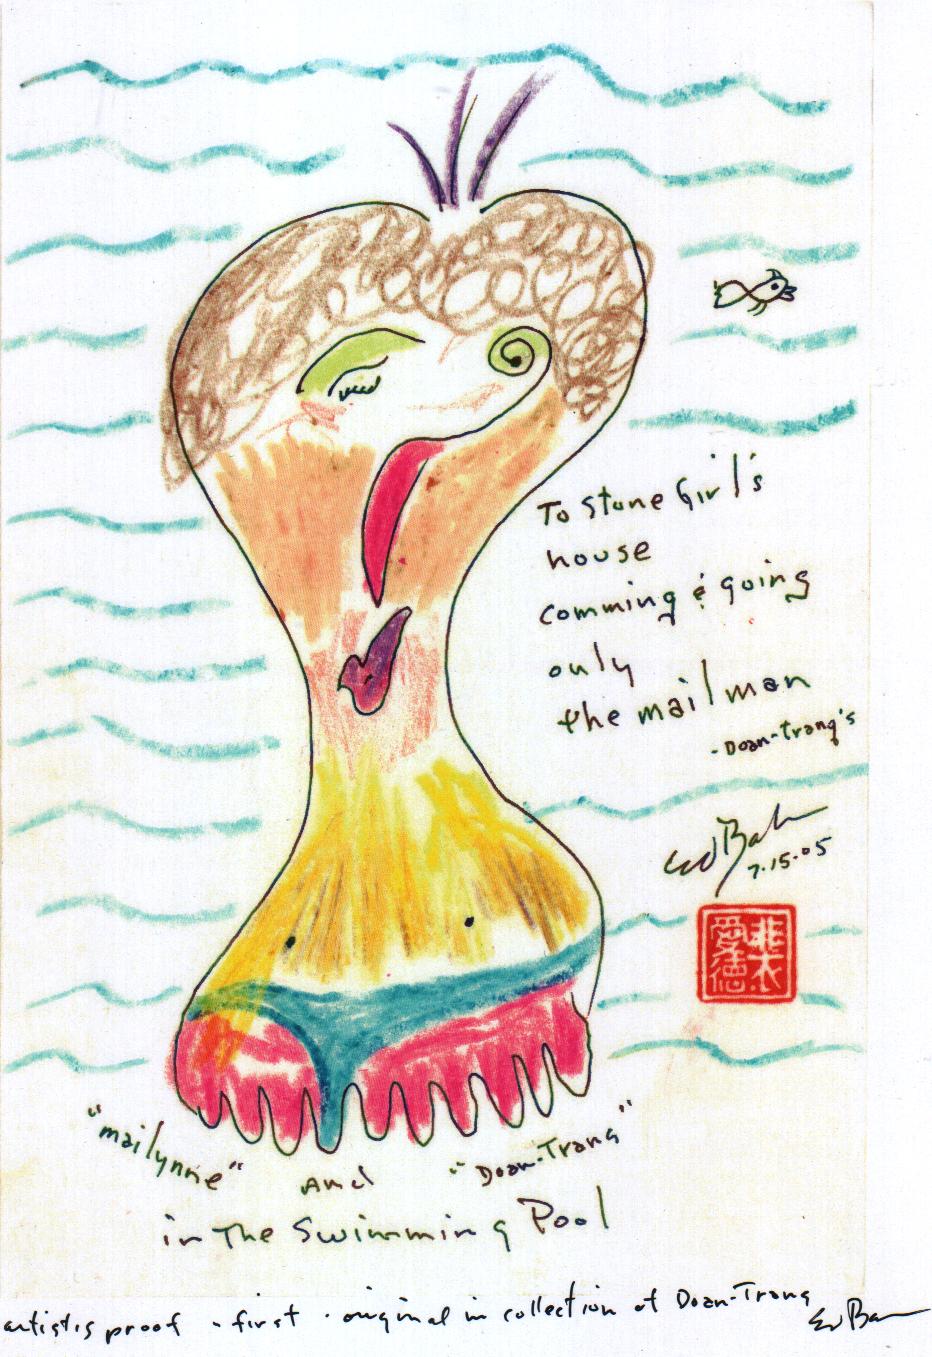 To Stone Girl's
house
comming & going
only
the mailman
- Doan-Trang's
Ed Baker
7.15.05
愛 非
德 衣
"mailynne" And "Doan-Trang"
in The Swimming Pool
artist's proof - first - original in collection of Doan-Trang
Ed Baker